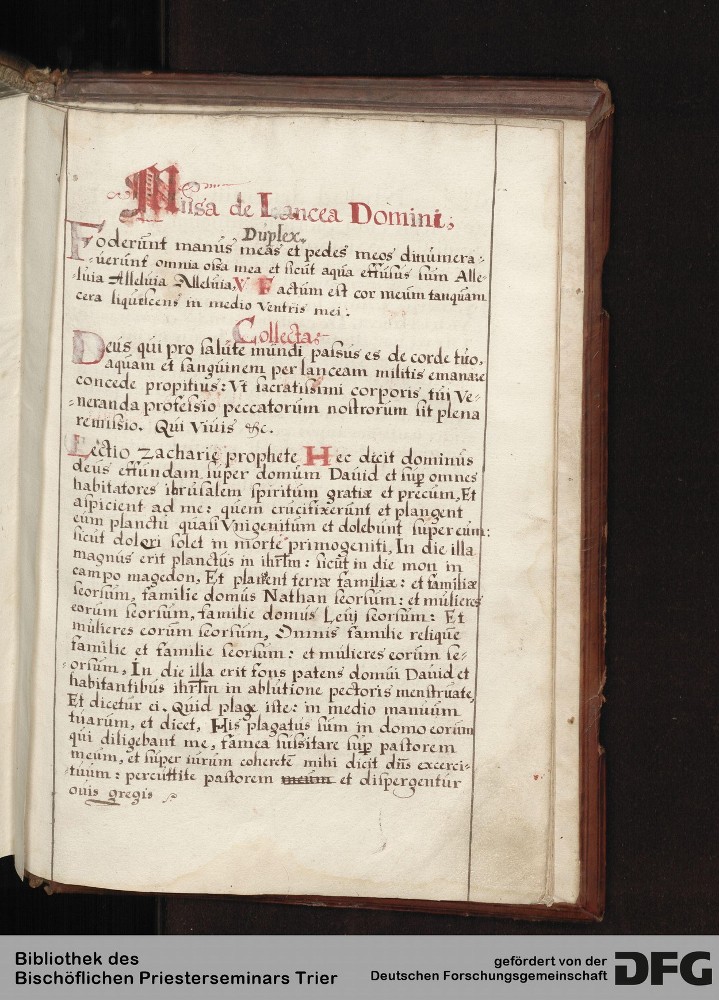 Missa de Lancea Domini,
Duplex.
Foderunt manus meas et pedes meos dinumera-
-uerunt omnia ossa mea et sicut aqua effusus sum Alle-
-luia Alleluia Alleluia, V Factum est cor meum tanquam
cera liquescens in medio ventris mei.
Collecta:
Deus qui pro salute mundi passus es de corde tuo,
aquam et sanguinem per lanceam militis emanare
concede propitius: Vt sacratissimi corporis tui Ve-
-neranda professio peccatorum nostrorum sit plena
remissio. Qui Viuis &c.
Lectio Zacharię prophete Hec dicit dominus
deus effundam super domum Dauid et sup omnes
habitatores ibrusalem spiritum gratiæ et precum, Et
aspicient ad me: quem crucifixerunt et plangent
eum planctu quasi Vnigenitum et dolebunt super eum:
sicut dolori solet in morte primogeniti, In die illa
magnus erit planctus in ihrlm: sicut in die mon in
campo magedon, Et plangent terræ familiæ: et familiæ
seorsum, familie domus Nathan seorsum: et mulieres
eorum seorsum, familie domus Leuj seorsum: Et
mulieres eorum seorsum, Omnis familie relique
familie et familie seorsum: et mulieres eorum se-
-orsum, In die illa erit fons patens domui Dauid et
habitantibus ihrlm in ablutione pectoris menstruate,
Et dicetur ei. Quid plagę iste: in medio manuum
tuarum, et dicet, His plagatus sum in domo eorum
qui diligebant me, famea suscitare sup pastorem
meum, et super uirum coherete mihi dicit dns excerci-
-tuum: percuttite pastorem meum et dispergentur
ouis gregis
Bibliothek des
Bischöflichen Priesterseminars Trier
gefördert von der
Deutschen Forschungsgemeinschaft
DFG